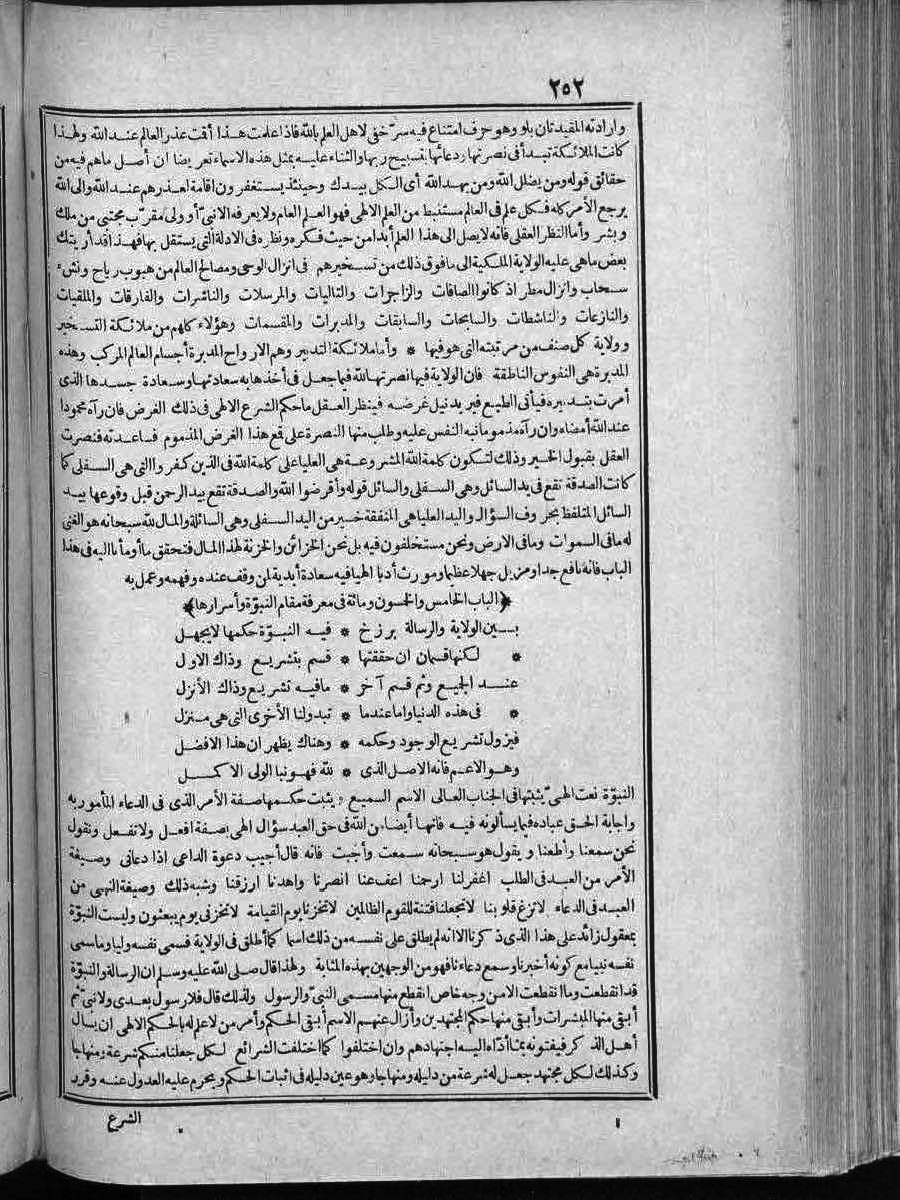 ٢٥٢
وارادته المقيدتان بلو وهو حرف امتناع فيه سرّ خفي لاهل العلم بالله فاذا علمت هذا أقت عذر العالم عند الله ولهذا
كانت الملائكة تبدأ فى نصرتها ردعائها بتسبيح ربها والثناء عليه بمثل هذه الاسماء تعريضا ان أصل ماهم فيه من
حقائق قوله ومن يضلل الله ومن يهد الله أى الكل بيدك وحينئذ يستغفرون اقامة لعذرهم عند الله والى الله
يرجع الأمر كله فكل علم فى العالم مستنبط من العلم الالهى فهو العلم العام ولا يعرفه الا نبىّ أو ولى مقرّب مجتبى من ملك
وبشر وأما النظر العقلى فانه لا يصل الى هذا العلم أبدا من حيث فكره ونظره فى الادلة التى يستقل بها فهذا قد أريتك
بعض ما هى عليه الولاية الملكية الى مافوق ذلك من تسخيرهم فى انزال الوحى ومصالح العالم من هبوب رياح ونشء
سحاب وانزال مطر اذ كانوا الصافات والزاجرات والتاليات والمرسلات والناشرات والفارقات والملقيات
والنازعات والناشطات والسابحات والسابقات والمدبرات والمقسمات وهؤلاء كلهم من ملائكة التسخير
وولاية كل صنف من مرتبته التى هو فيها * وأما ملائكة التدبير وهم الارواح المدبرة أجسام العالم المركب وهذه
المدبرة هى النفوس الناطقة فان الولاية فيها نصرتها لله فيما جعل فى أخذها به سعادتها وسعادة جسدها الذى
أمرت بتدبيره فيأتى الطبع فيريد نيل غرضه فينظر العقل ما حكم الشرع الالهى فى ذلك الغرض فان رآه محمودا
عند الله أمضاه وان رآه مذموما نبه النفس عليه وطلب منها النصرة على قمع هذا الغرض المذموم فساعدته فنصرت
العقل بقبول الخير وذلك لتكون كلمة الله المشروعة هى العليا على كلمة الله فى الذين كفروا التى هى السفلى كما
كانت الصدقة تقع فى يد السائل وهى السفلى والسائل قوله وأقرضوا الله والصدقة تقع بيد الرحمن قبل وقوعها بيد
السائل المتلفظ بحروف السؤال واليد العليا هى المنفقة خير من اليد السفلى وهى السائلة والمال لله سبحانه هو الغنى
له مافى السموات ومافى الارض ونحن مستخلفون فيه بل نحن الخزائن والخزنة لهذا المال فتحقق ما أومأنا اليه فى هذا
الباب فانه نافع جدا ومزيل جهلا عظيما ومورث أدبا الهيا فيه سعادة أبدية لمن وقف عنده وفهمه وعمل به
﴿الباب الخامس والخسون ومائة فى معرفة مقام النبوّة وأسرارها﴾
بين الولاية والرسالة برزخ * فيه النبوّة حكمها لا يجهل
* لكنها قسمان ان حققتها * قسم بتشريع وذاك الاول
عند الجميع وثم قسم آخر * مافيه تشريع وذاك الأنزل
* فى هذه الدنيا واما عندما * تبدو لنا الأخرى التى هى منزل
فيزول تشريع الوجود وحكمه * وهناك يظهر ان هذا الافضل
وهو الاعم فانه الاصل الذى * لله فهو نبا الولى الاكمل
النبوّة نعت الهىّ يثبتها فى الجناب العالى الاسم السميع ويثبت حكمها صفة الأمر الذى فى الدعاء المأمور به
واجابة الحق عباده فيما يسألونه فيه فانها أيضا من الله فى حق العبد سؤال الهى بصفة افعل ولا تفعل ونقول
نحن سمعنا وأطعنا ويقول هو سبحانه سمعت وأجبت فانه قال أجيب دعوة الداعى اذا دعانى وصيغة
الأمر من العبد فى الطلب اغفر لنا ارحمنا اعف عنا انصرنا واهدنا ارزقنا وشبه ذلك وصيغة النهى من
العبد فى الدعاء لا تزغ قلوبنا لا تجعلنا فتنة للقوم الظالمين لا تخزنا يوم القيامة لا تخزنى يوم يبعثون وليست النبوّة
بمعقول زائد على هذا الذى ذكرنا الا انه لم يطلق على نفسه من ذلك اسما كما أطلق فى الولاية فسمى نفسه وليا وماسمى
نفسه نبيا مع كونه أخبرنا وسمع دعاءنا فهو من الوجهين بهذه المثابة ولهذا قال صلى الله عليه وسلم ان الرسالة والنبوّة
قد انقطعت وما انقطعت الا من وجه خاص انقطع منها مسمى النبىّ والرسول ولذلك قال فلا رسول بعدى ولا نبىّ ثم
أبقى منها المبشرات وأبقى منها حكم المجتهدين وأزال عنهم الاسم أبقى الحكم وأمر من لا علم له بالحكم الالهى ان يسأل
أهل الذكر فيفتونه بما أدّاه اليه اجتهادهم وان اختلفوا كما اختلفت الشرائع لكل جعلنا منكم شرعة ومنهاجا
وكذلك لكل مجتهد جعل له شرعة من دليله ومنهاجا وهو عين دليله فى اثبات الحكم ويحرم عليه العدول عنه وقرر
الشرع